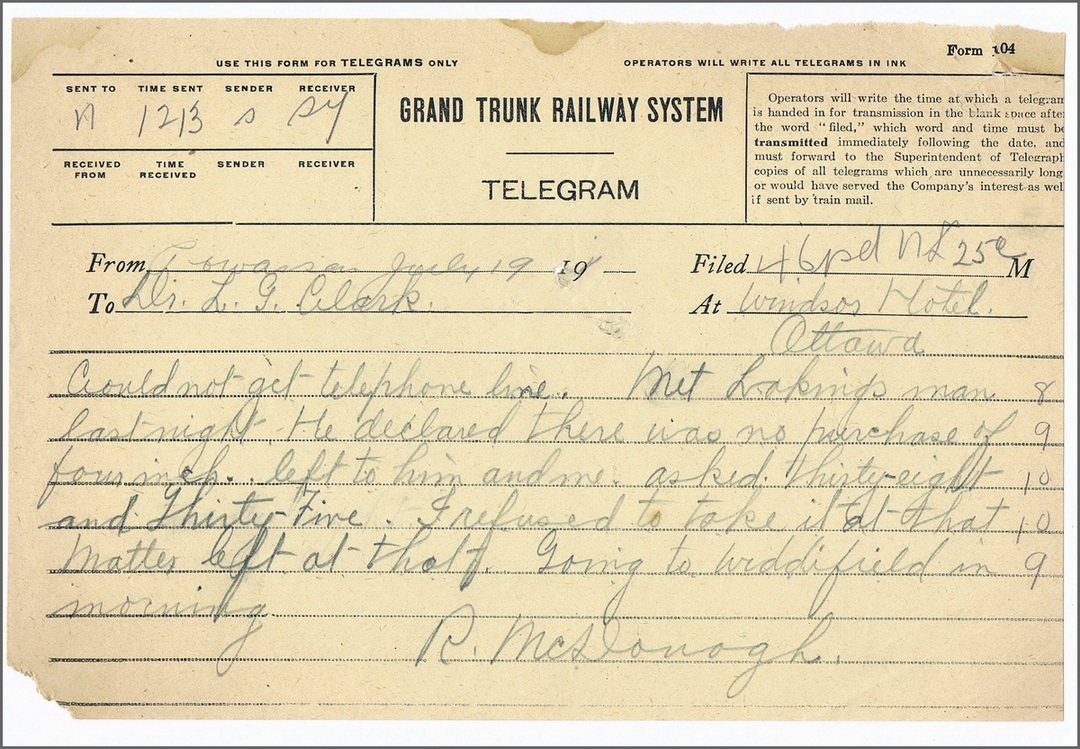 Form 104
USE THIS FORM FOR TELEGRAMS ONLY
OPERATORS WILL WRITE ALL TELEGRAMS IN INK
SENT TO TIME SENT SENDER RECEIVER
N 1213 S SY
RECEIVED FROM TIME RECEIVED SENDER RECEIVER
GRAND TRUNK RAILWAY SYSTEM
TELEGRAM
Operators will write the time at which a telegram
is handed in for transmission in the blank space after
the word "filed," which word and time must be
transmitted immediately following the date, and
must forward to the Superintendent of Telegraph
copies of all telegrams which are unnecessarily long
or would have served the Company's interest as well
if sent by train mail.
From July 19 19
Filed 46 pd NL 25c M
To Dr. L. G. Clark.
At Windsor Hotel.
Ottawa
Could not get telephone line. Met man 8
last night. He declared there was no purchase of 9
four inch. left to him and me. asked. thirty-eight 10
and Thirty-Five. I refused to take it at that 10
Matter left at that. Going to Widdifield in 9
morning
R. McDonogh.